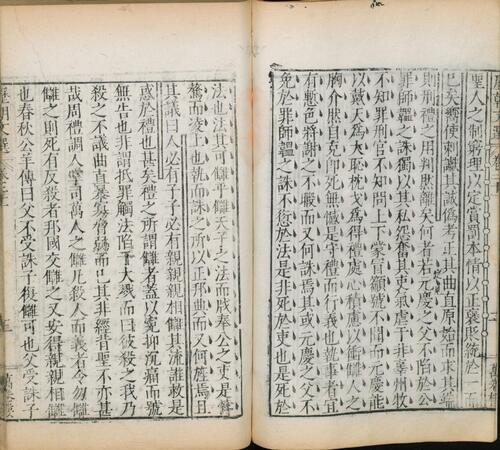 聖人之制窮理以定賞罰本情以正襃貶統於一而
已矣嚮使刺讞其誠僞考正其曲直原始而求其端
則刑禮之用判然離矣何者若元慶之父不陷於公
罪師韞之誅獨以其私怨奮其吏氣虐于非辜州牧
不知罪刑官不知問上下蒙冒籲號不聞而元慶能
以戴天爲大恥枕戈爲得禮處心積慮以衝讎人之
胸介然自克卽死無憾是守禮而行義也執事者宜
有慙色將謝之不暇而又何誅焉其或元慶之父不
免於罪師韞之誅不愆於法是非死於吏也是死於
法也法其可讎乎讎天子之法而戕奉公之吏是悖
驁而凌上也執而誅之所以正邦典而又何旌焉且
其議曰人必有子子必有親親親相讎其流誰救是
惑於禮也甚矣禮之所謂讎者蓋以冤抑沉痛而號
無告也非謂抵罪觸法陷于大戮而曰彼殺之我乃
殺之不議曲直暴寡脅弱而已其非經背聖不亦甚
哉周禮調人掌司萬人之讎凡殺人而義者令勿
讎之則死有反殺者邦國交讎之又安得親親相讎
也春秋公羊傳曰父不受誅子復讎可也父受誅子
歷朝文選